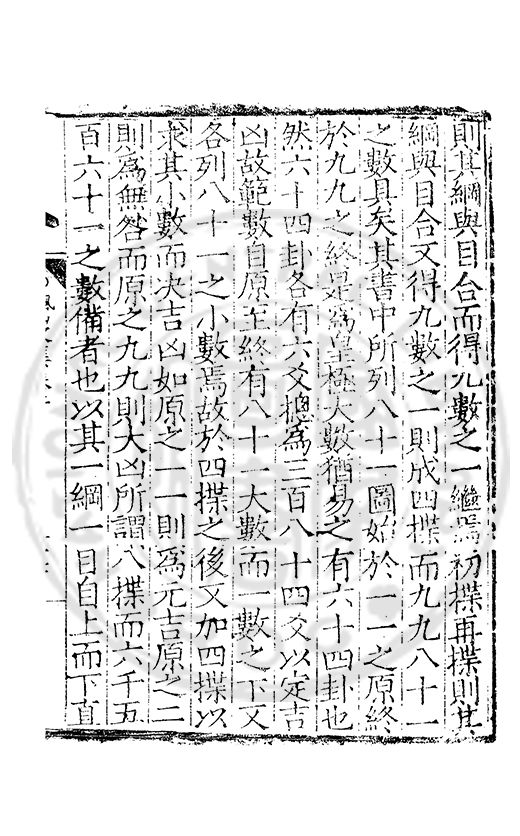 則其綱與目合而得九數之一繼爲初揲再揲則其
綱與目合又得九數之一則成四揲而九九八十一
之數具矣其書中所列八十一圖始於一一之原終
於九九之終是爲皇極大數猶易之有六十四卦也
然六十四卦各有六爻揔爲三百八十四爻以定吉
凶故範數自原至終有八十一大數而一數之下又
各列八十一之小數焉故於四揲之後又加四揲以
求其小數而决吉凶如原之一一則爲元吉原之二
則爲無咎而原之九九則大凶所謂八揲而六千五
百六十一之數備者也以其一綱一目自上而下直